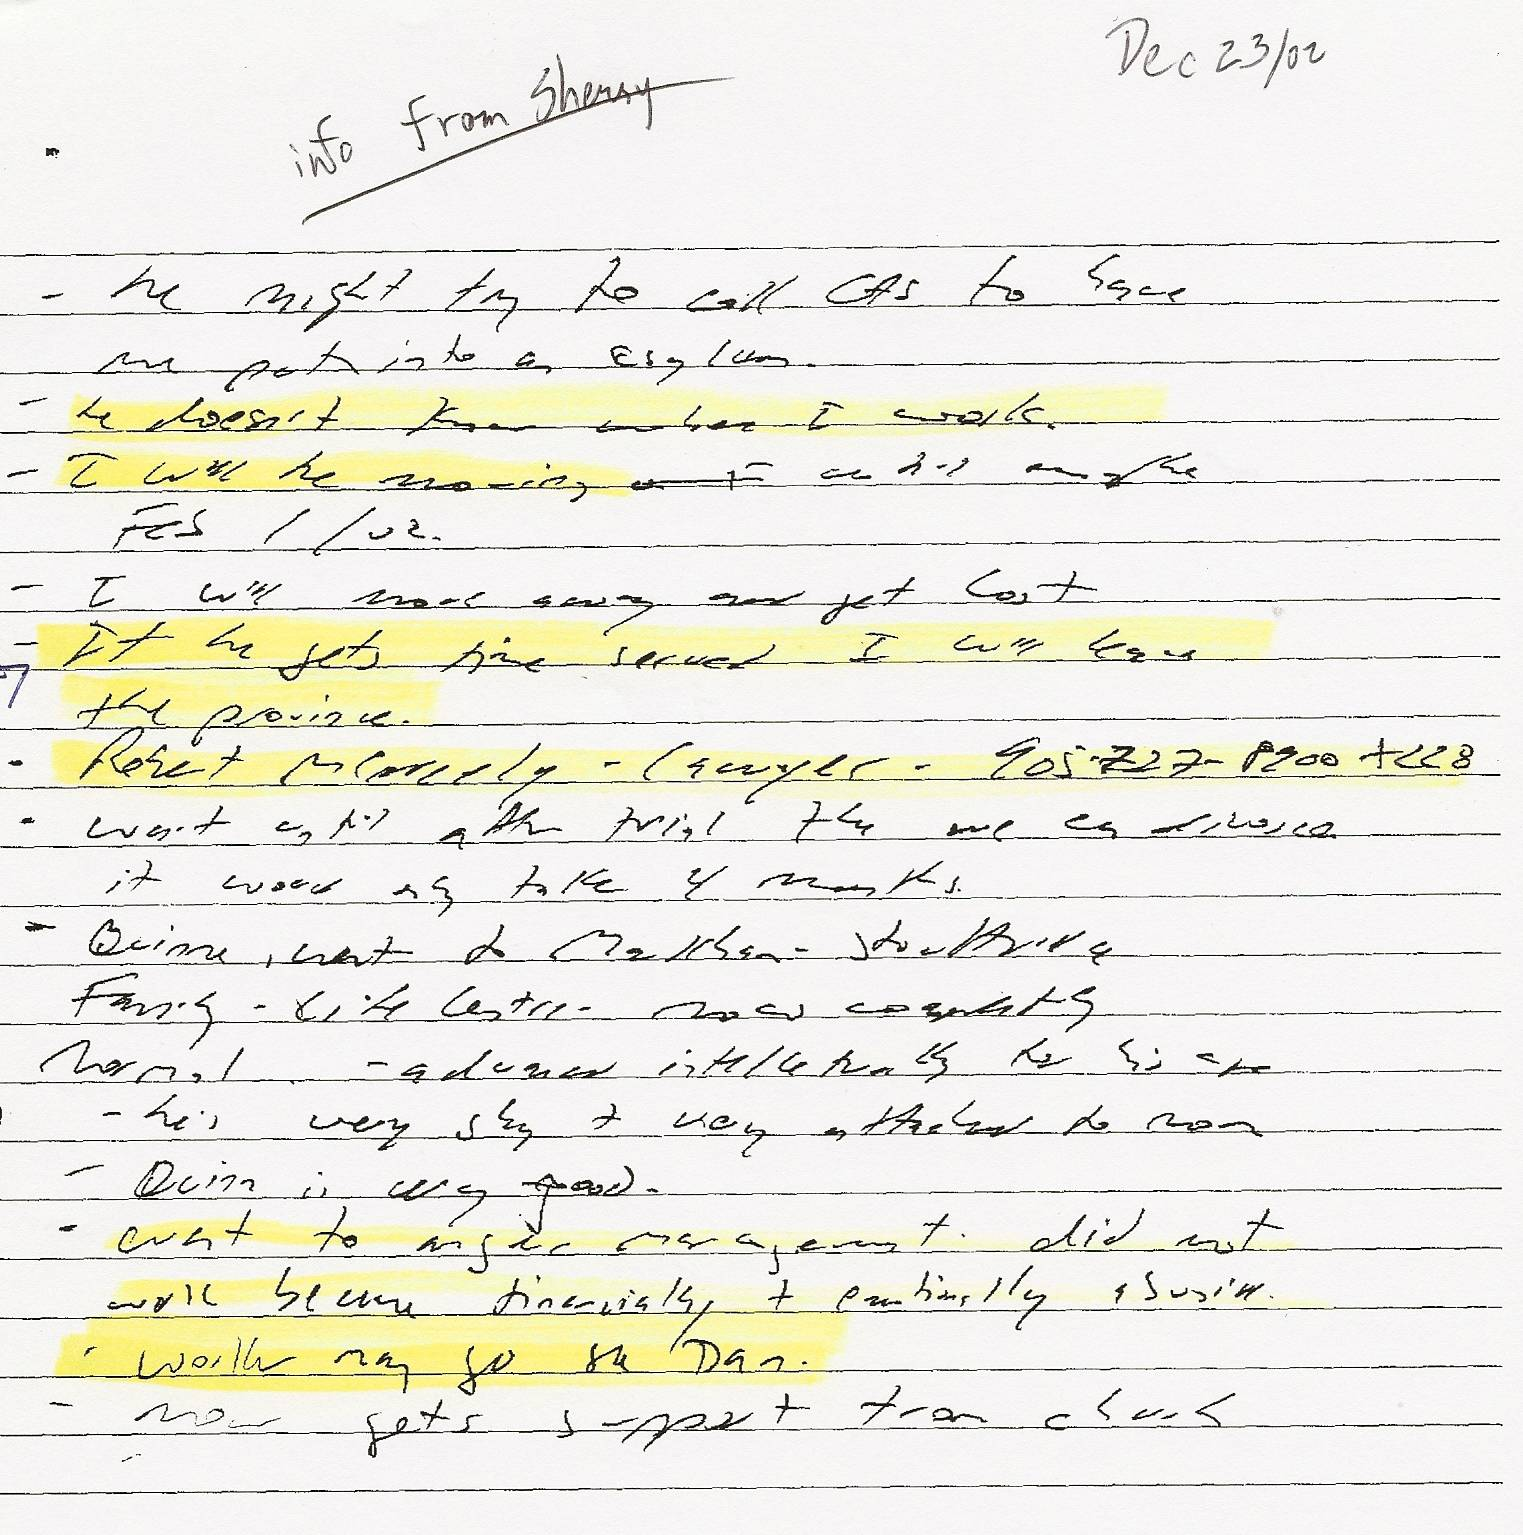 Dec 23/02
info from Sherry
- he might try to call CAS to have
me put into an asylum.
- he doesn't know where I work.
- I will be moving until maybe
Feb 1/02.
- I will move away and get lost
- If he gets time served I will leave
the province.
- Robert - Lawyer - 905-727-8900 +228
- wait until after trial the we can divorce
it would only take 4 months.
- Quinn went to Markham-Stouffville
Family-Life Centre - now completely
normal - advanced intellectually for his age
- he's very shy + very attached to mom
- Quinn is very good.
- went to anger management. did not
work because financially + emotionally abusive.
- worker may go see Dan.
- mom gets support from church